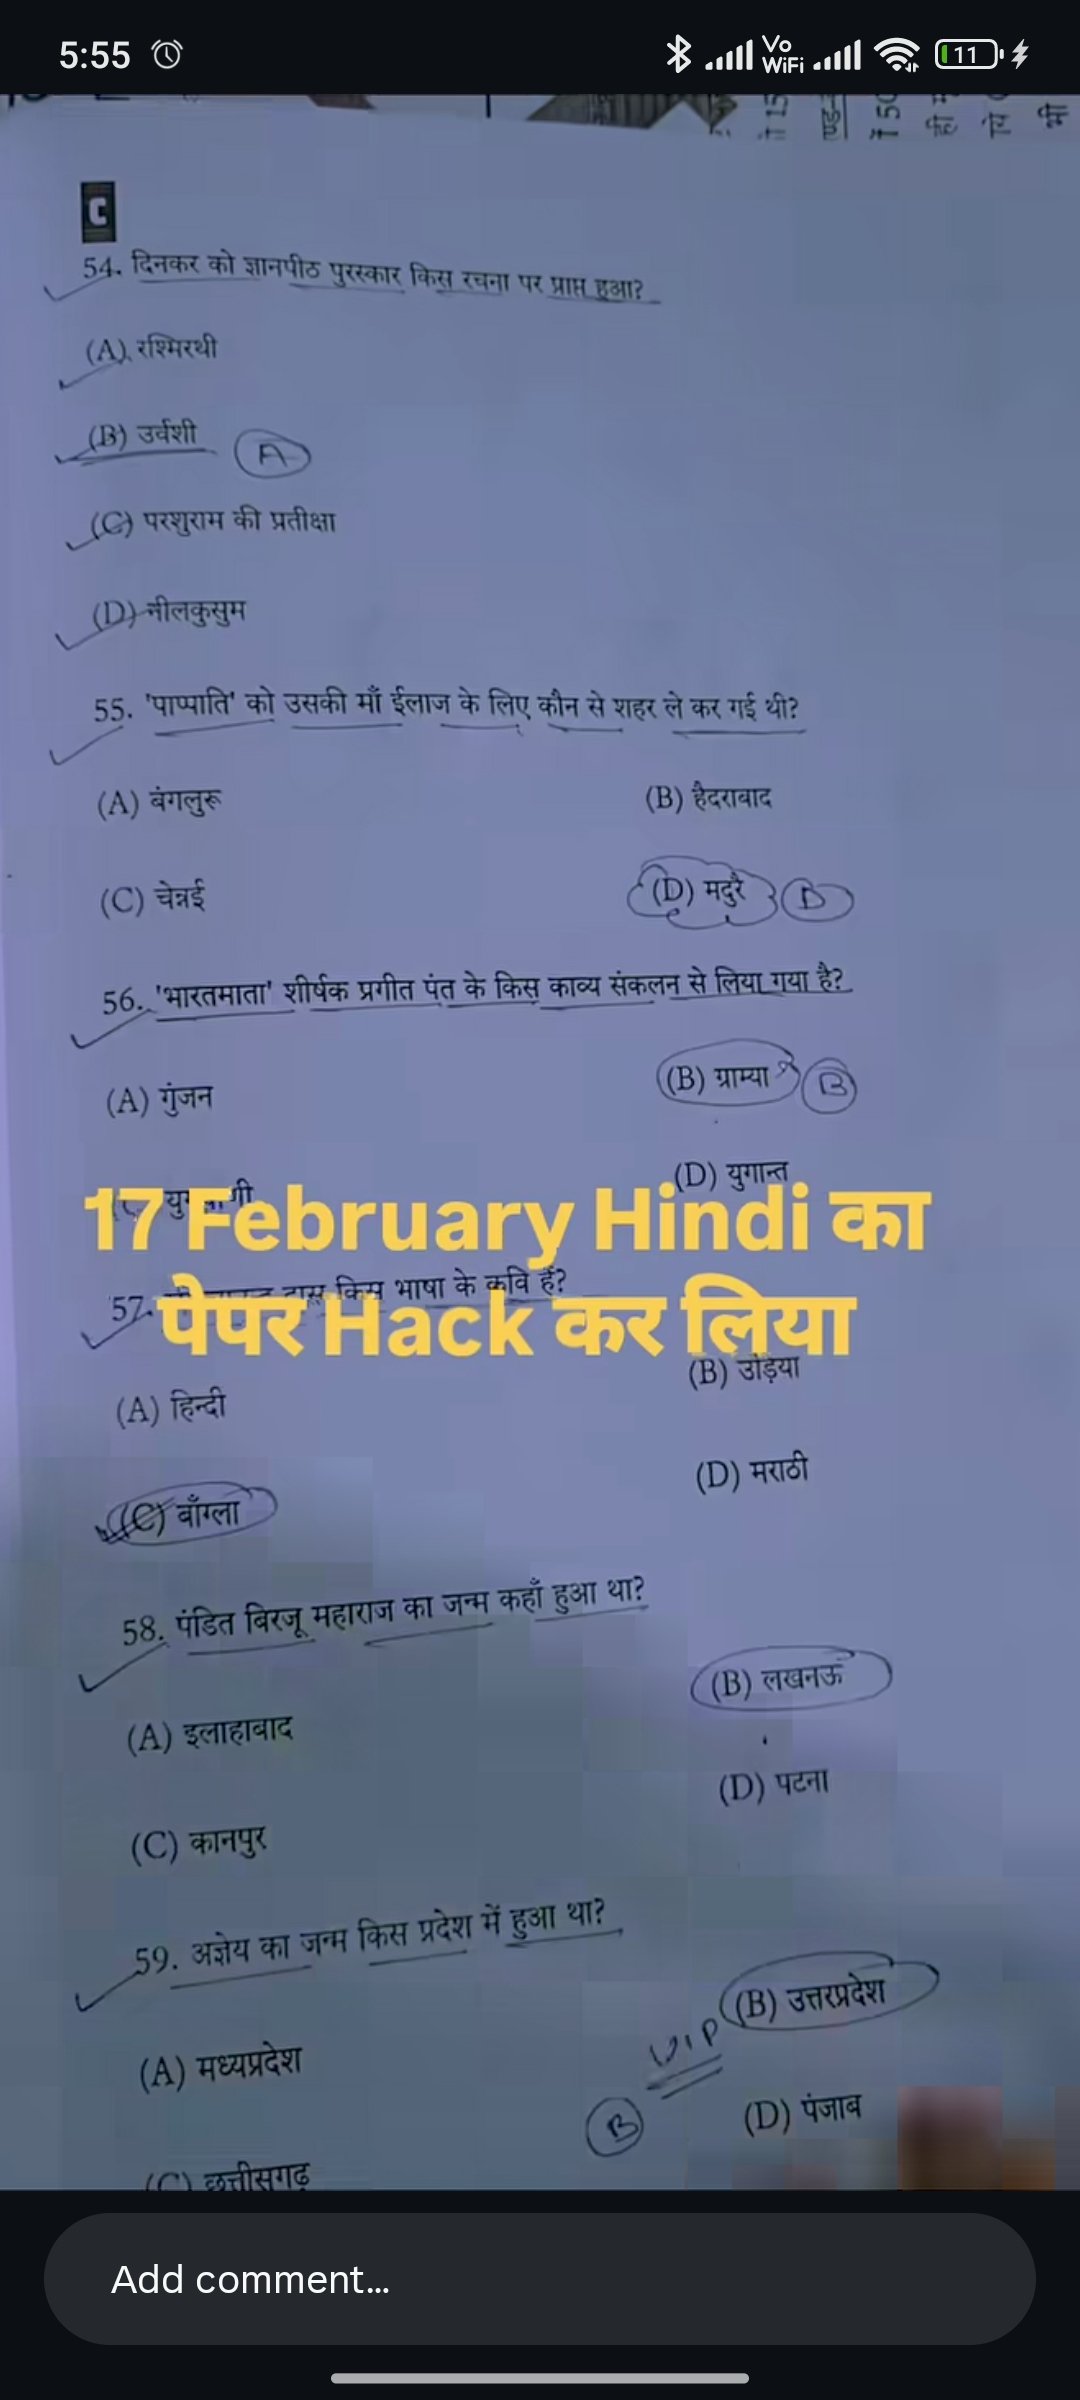 5:55
Vo
WiFi
11
C
54. दिनकर को ज्ञानपीठ पुरस्कार किस रचना पर प्राप्त हुआ?
(A) रश्मिरथी
(B) उर्वशी
A
(C) परशुराम की प्रतीक्षा
(D) नीलकुसुम
55. 'पाप्पाति' को उसकी माँ ईलाज के लिए कौन से शहर ले कर गई थी?
(A) बंगलुरू (B) हैदराबाद
(C) चेन्नई (D) मदुरै D
56. 'भारतमाता' शीर्षक प्रगीत पंत के किस काव्य संकलन से लिया गया है?
(A) गुंजन (B) ग्राम्या B
(D) युगान्त
17 February Hindi का
पेपर Hack कर लिया
57. दास किस भाषा के कवि हैं?
(A) हिन्दी (B) उड़िया
(C) बाँग्ला (D) मराठी
58. पंडित बिरजू महाराज का जन्म कहाँ हुआ था?
(A) इलाहाबाद (B) लखनऊ
(C) कानपुर (D) पटना
59. अज्ञेय का जन्म किस प्रदेश में हुआ था?
(A) मध्यप्रदेश (B) उत्तरप्रदेश
V.I.P
B
(C) छत्तीसगढ़ (D) पंजाब
Add comment...